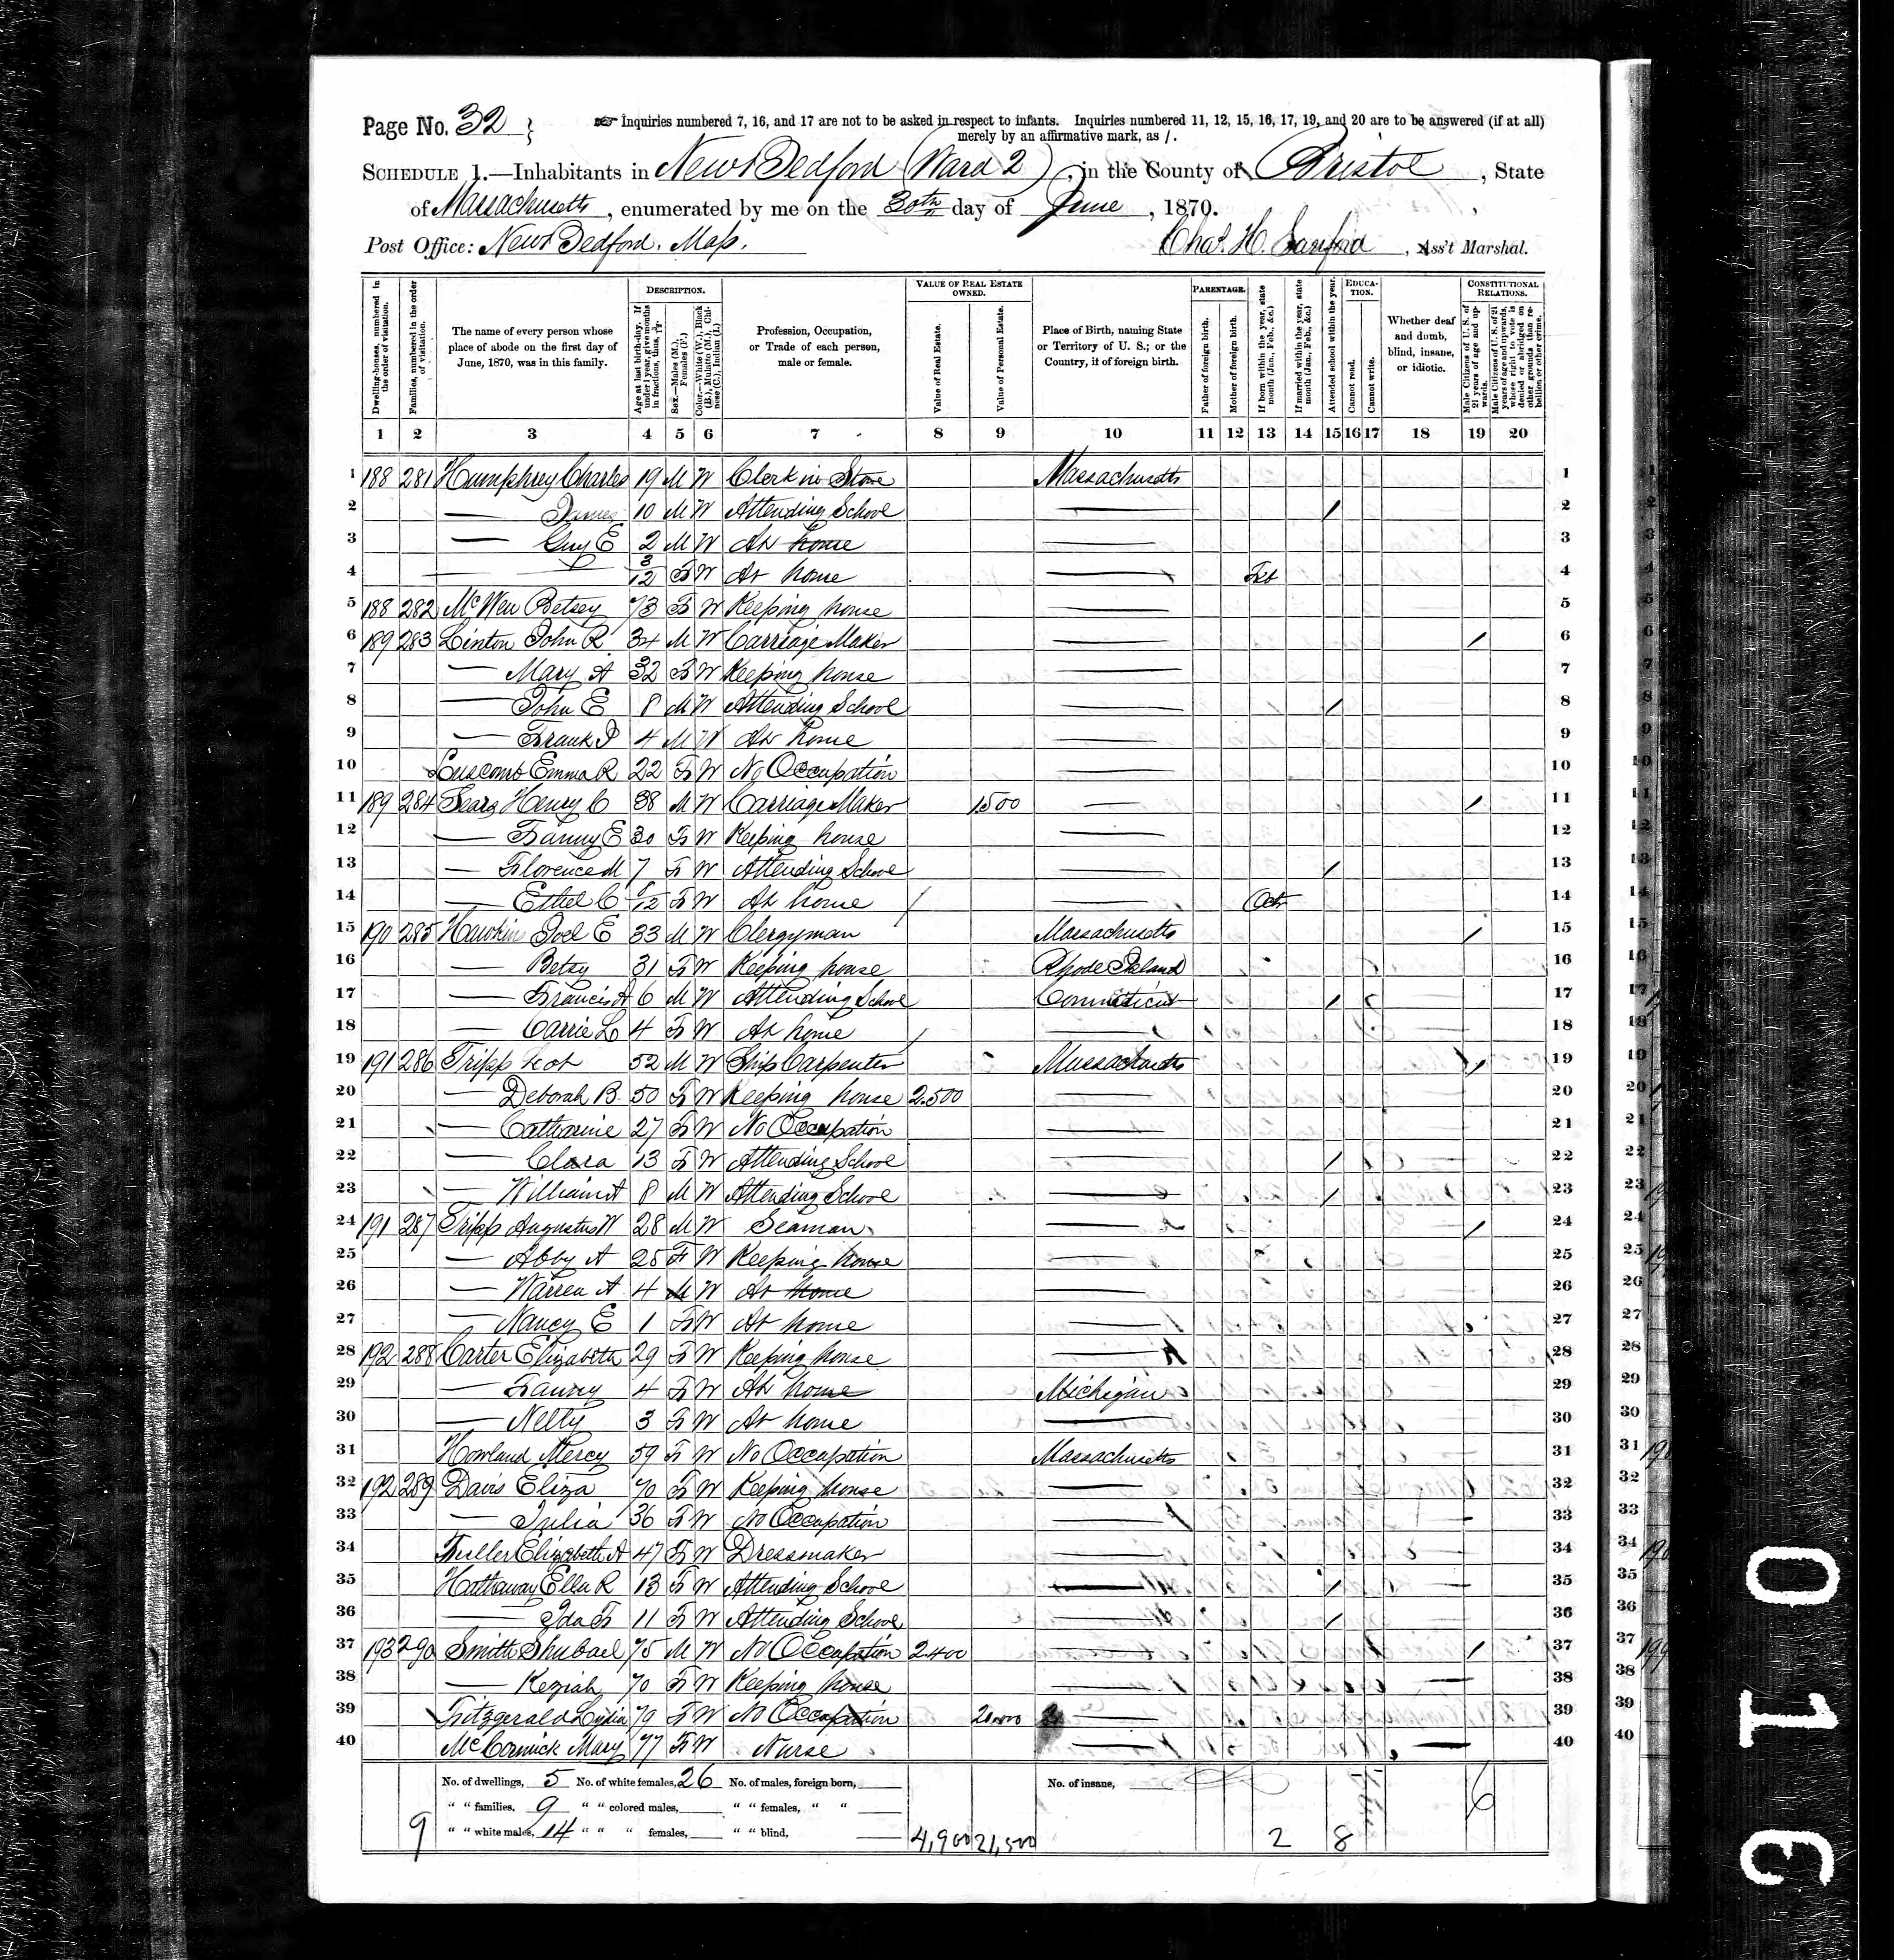 Page No. 32
☞ Inquiries numbered 7, 16, and 17 are not to be asked in respect to infants. Inquiries numbered 11, 12, 15, 16, 17, 19, and 20 are to be answered (if at all)
merely by an affirmative mark, as /.
SCHEDULE 1.—Inhabitants in New Bedford (Ward 2), in the County of Bristol, State
of Massachusetts, enumerated by me on the 30th day of June, 1870.
Post Office: New Bedford. Mass.
Chas. H. Sanford, Ass't Marshal.
Dwelling-houses, numbered in the order of visitation.
Families, numbered in the order of visitation.
The name of every person whose place of abode on the first day of June, 1870, was in this family.
DESCRIPTION.
Age at last birth-day. If under 1 year, give months in fractions, thus, 3/12.
Sex.—Males (M.), Females (F.)
Color.—White (W.), Black (B.), Mulatto (M.), Chinese (C.), Indian (I.)
Profession, Occupation, or Trade of each person, male or female.
VALUE OF REAL ESTATE OWNED.
Value of Real Estate.
Value of Personal Estate.
Place of Birth, naming State or Territory of U. S.; or the Country, if of foreign birth.
PARENTAGE.
Father of foreign birth.
Mother of foreign birth.
If born within the year, state month (Jan., Feb., &c.)
If married within the year, state month (Jan., Feb., &c.)
Attended school within the year.
EDUCATION.
Cannot read.
Cannot write.
Whether deaf and dumb, blind, insane, or idiotic.
CONSTITUTIONAL RELATIONS.
Male Citizens of U. S. of 21 years of age and upwards.
Male Citizens of U. S. of 21 years of age and upwards, whose right to vote is denied or abridged on other grounds than rebellion or other crime.
1 2 3 4 5 6 7 8 9 10 11 12 13 14 15 16 17 18 19 20
1 188 281 Humphrey Charles 19 M W Clerk in Store Massachusetts 1
2 — James 10 M W Attending School — / 2
3 — Guy E 2 M W At home — 3
4 — 3/12 F W At home — Feb 4
5 188 282 Betsey 73 F W Keeping house — 5
6 189 283 Linton John R 34 M W Carriage Maker — / 6
7 — Mary A 32 F W Keeping house — 7
8 — John E 8 M W Attending School — / 8
9 — Frank 4 M W At home — 9
10 Luscomb Emma R 22 F W No Occupation — 10
11 189 284 Sears Henry C 38 M W Carriage Maker 1500 — / 11
12 — Fanny E 30 F W Keeping house — 12
13 — Florence M 7 F W Attending School — / 13
14 — Ethel C F W At home — Oct 14
15 190 285 Hawkins Joel E 33 M W Clergyman Massachusetts / 15
16 — Betsy 31 F W Keeping house Rhode Island 16
17 — Francis A 6 M W Attending School Connecticut / 17
18 — Carrie L 4 F W At home — 18
19 191 286 Tripp Lot 52 M W Ship Carpenter Massachusetts / 19
20 — Deborah B. 50 F W Keeping house 2.500 — 20
21 — Catharine 27 F W No Occupation — 21
22 — Clara 13 F W Attending School — / 22
23 — William A 8 M W Attending School — / 23
24 191 287 Tripp Augustus W 28 M W Seaman — / 24
25 — Abby A 25 F W Keeping house — 25
26 — Warren A 4 M W At home — 26
27 — Nancy E 1 F W At home — 27
28 192 288 Carter Elizabeth 29 F W Keeping house — 28
29 — Fanny 4 F W At home Michigan 29
30 — Nelly 3 F W At home — 30
31 Howland Mercy 59 F W No Occupation Massachusetts 31
32 192 289 Davis Eliza 70 F W Keeping house — 32
33 — Julia 36 F W No Occupation — 33
34 Fuller Elizabeth A 47 F W Dressmaker — 34
35 Hathaway Ella R 13 F W Attending School — / 35
36 — Ida F 11 F W Attending School — / 36
37 193 290 Smith Shubael 75 M W No Occupation 2.400 — / 37
38 — Keziah 70 F W Keeping house — 38
39 Fitzgerald Lydia 79 F W No Occupation 20.000 — 39
40 McCormick Mary 77 F W Nurse — 40
No. of dwellings, 5 No. of white females, 26 No. of males, foreign born, No. of insane,
" " families, 9 " " colored males, " " females, " "
9 " " white males, 14 " " " females, " " blind, 4,900 21,500 2 8 6
0 1 3